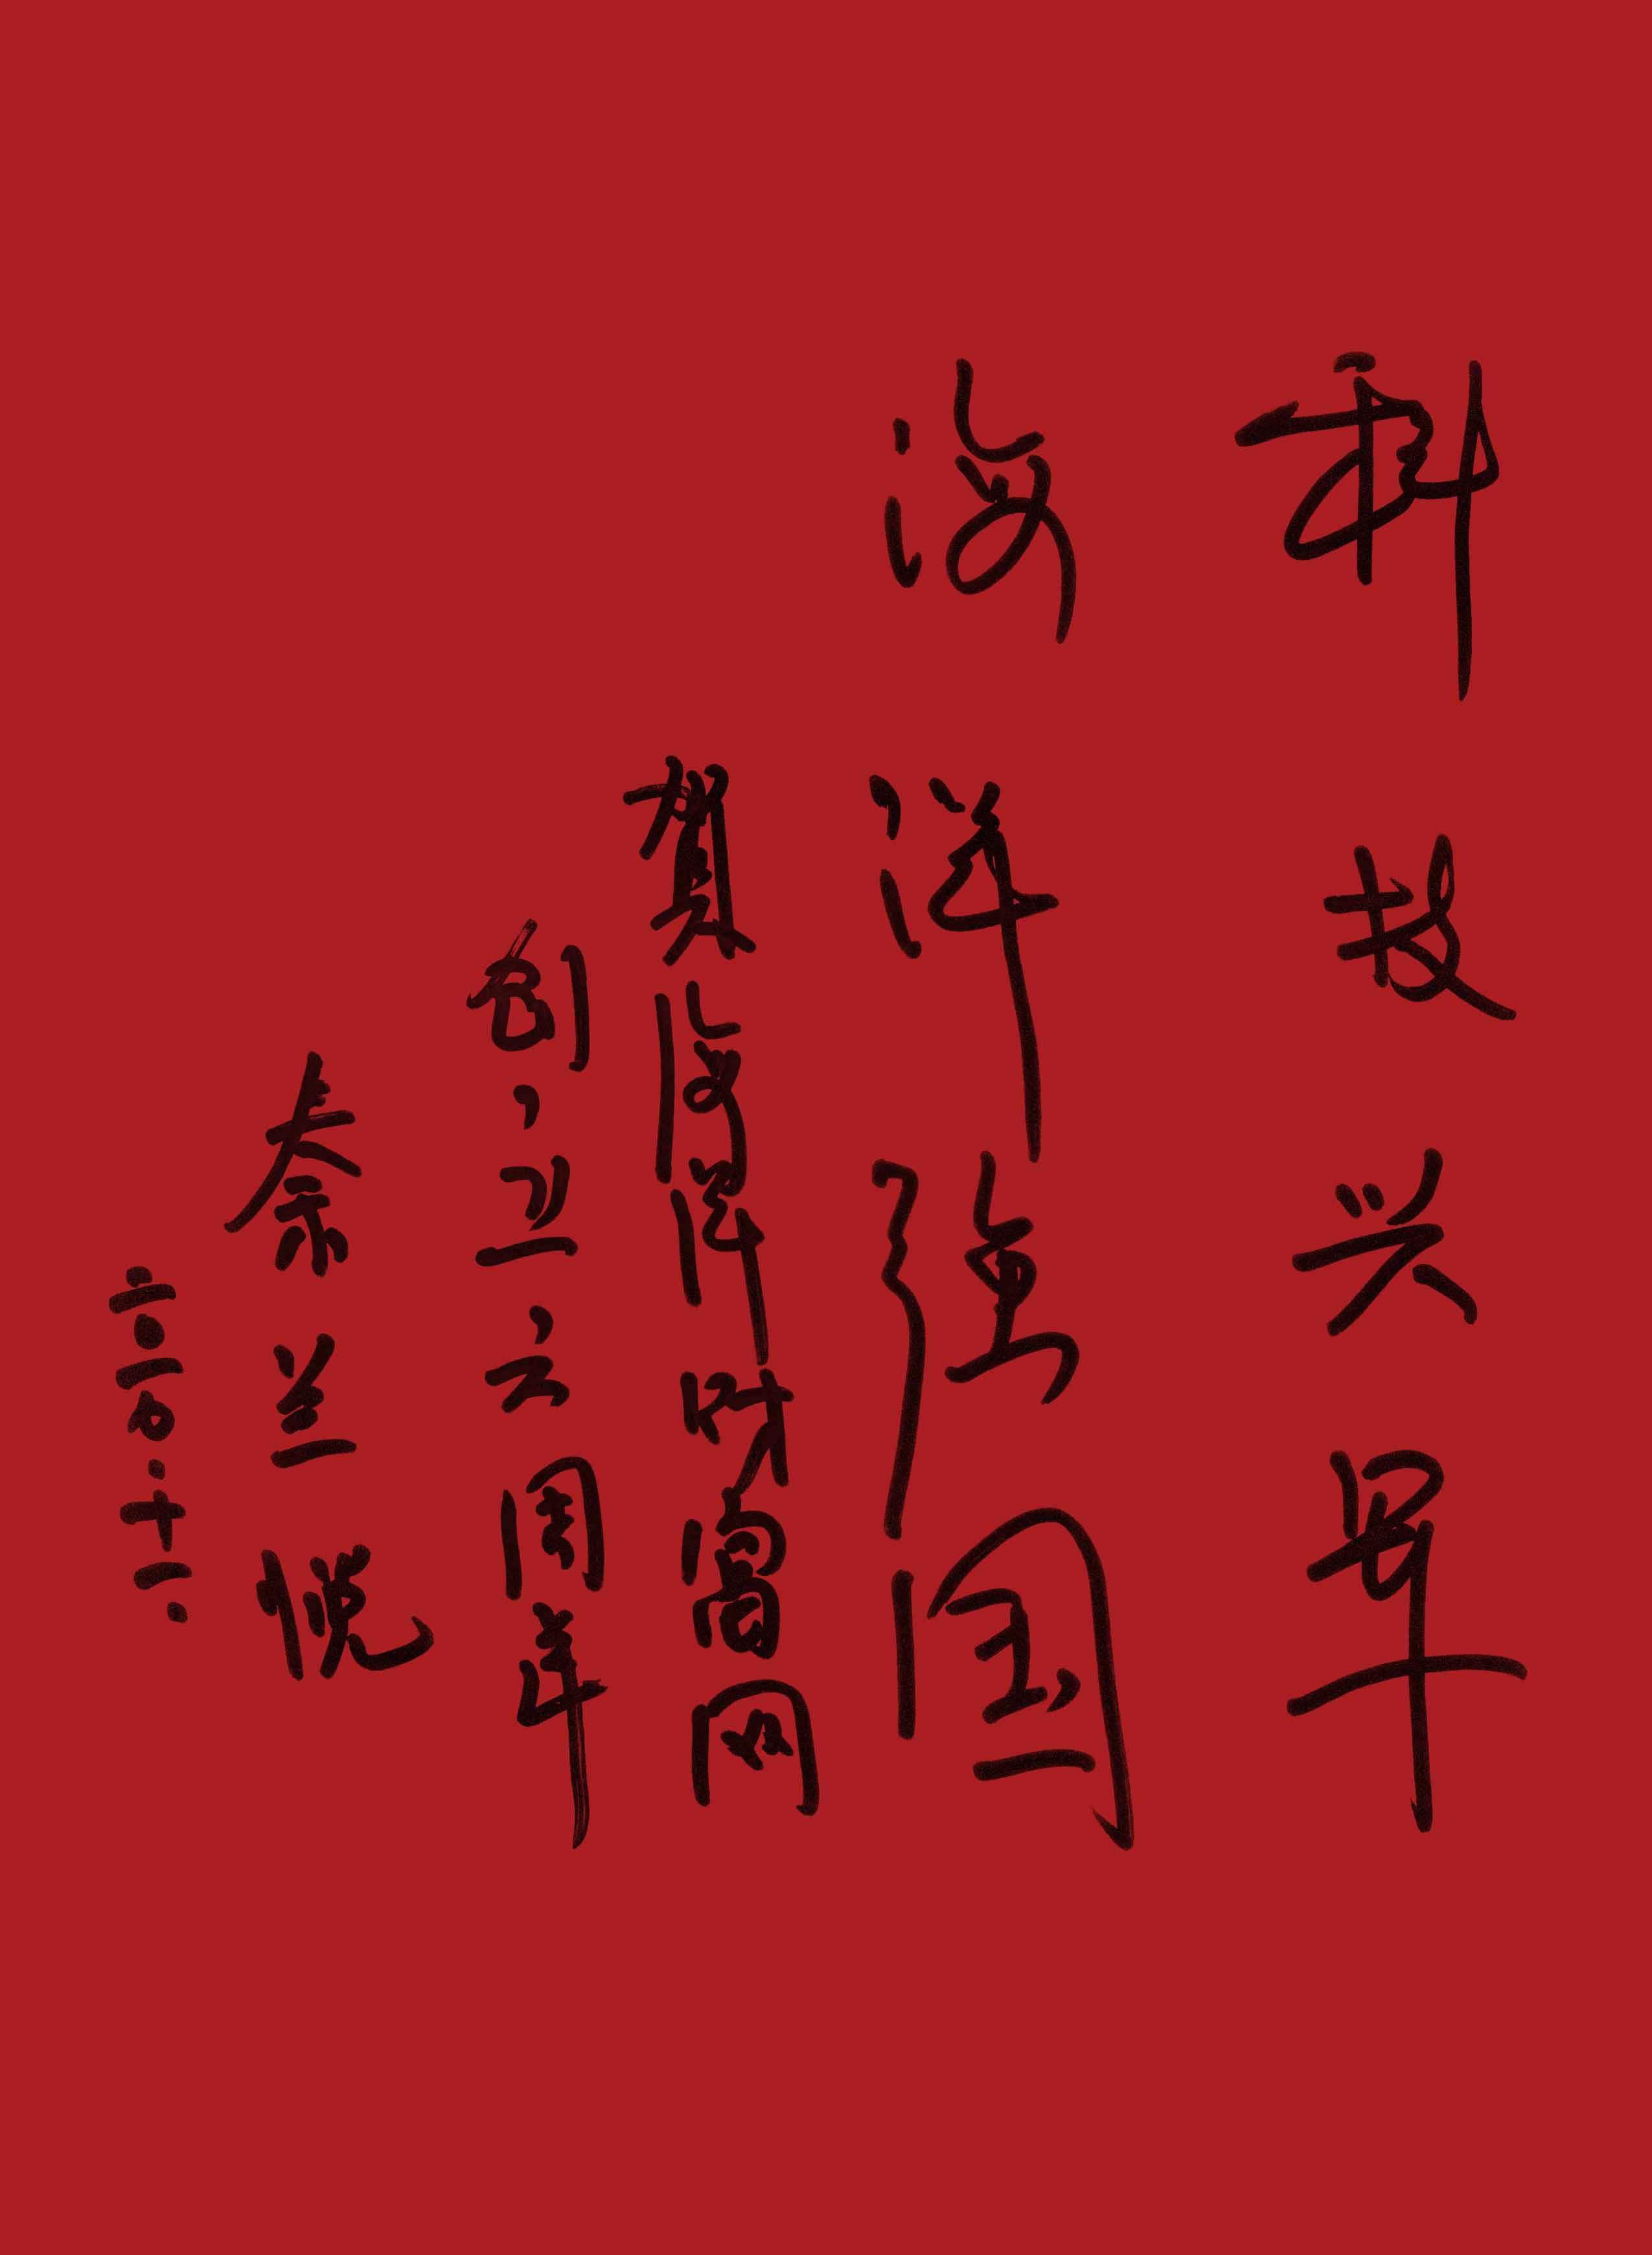 科技兴军
海洋强国
贺海洋财富网
创立六周年
秦兰悦
二〇一九·十二·